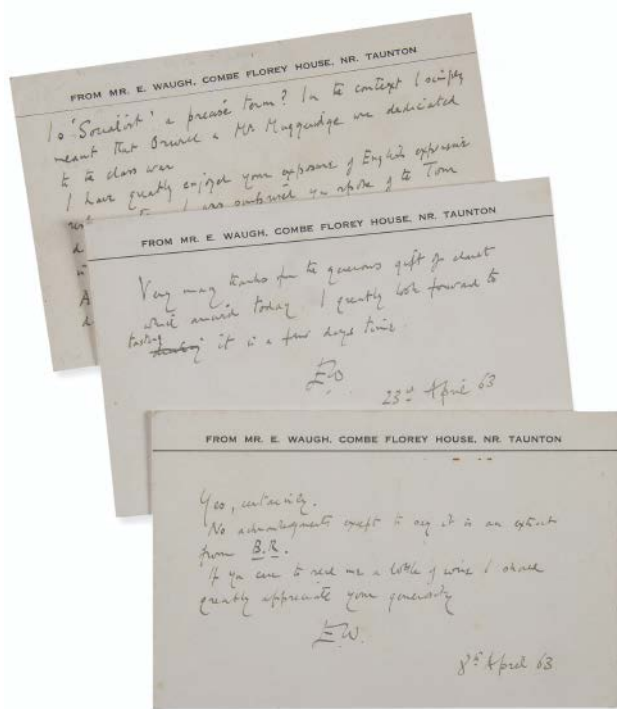 FROM MR. E. WAUGH, COMBE FLOREY HOUSE, NR. TAUNTON
Is 'Socialist' a precise term? In the context I simply
meant that Orwell & Mr Muggeridge were dedicated
to the class war
I have greatly enjoyed your exposure of English expensive
I was surprised you spoke of the Tour
FROM MR. E. WAUGH, COMBE FLOREY HOUSE, NR. TAUNTON
Very many thanks for the generous gift of claret
which arrived today. I greatly look forward to
tasting it in a few days time.
E.W
23rd April 63
FROM MR. E. WAUGH, COMBE FLOREY HOUSE, NR. TAUNTON
Yes, certainly.
No acknowledgments except to say it is an extract
from B.R.
If you care to send me a bottle of wine I should
greatly appreciate your generosity
E.W.
8th April 63